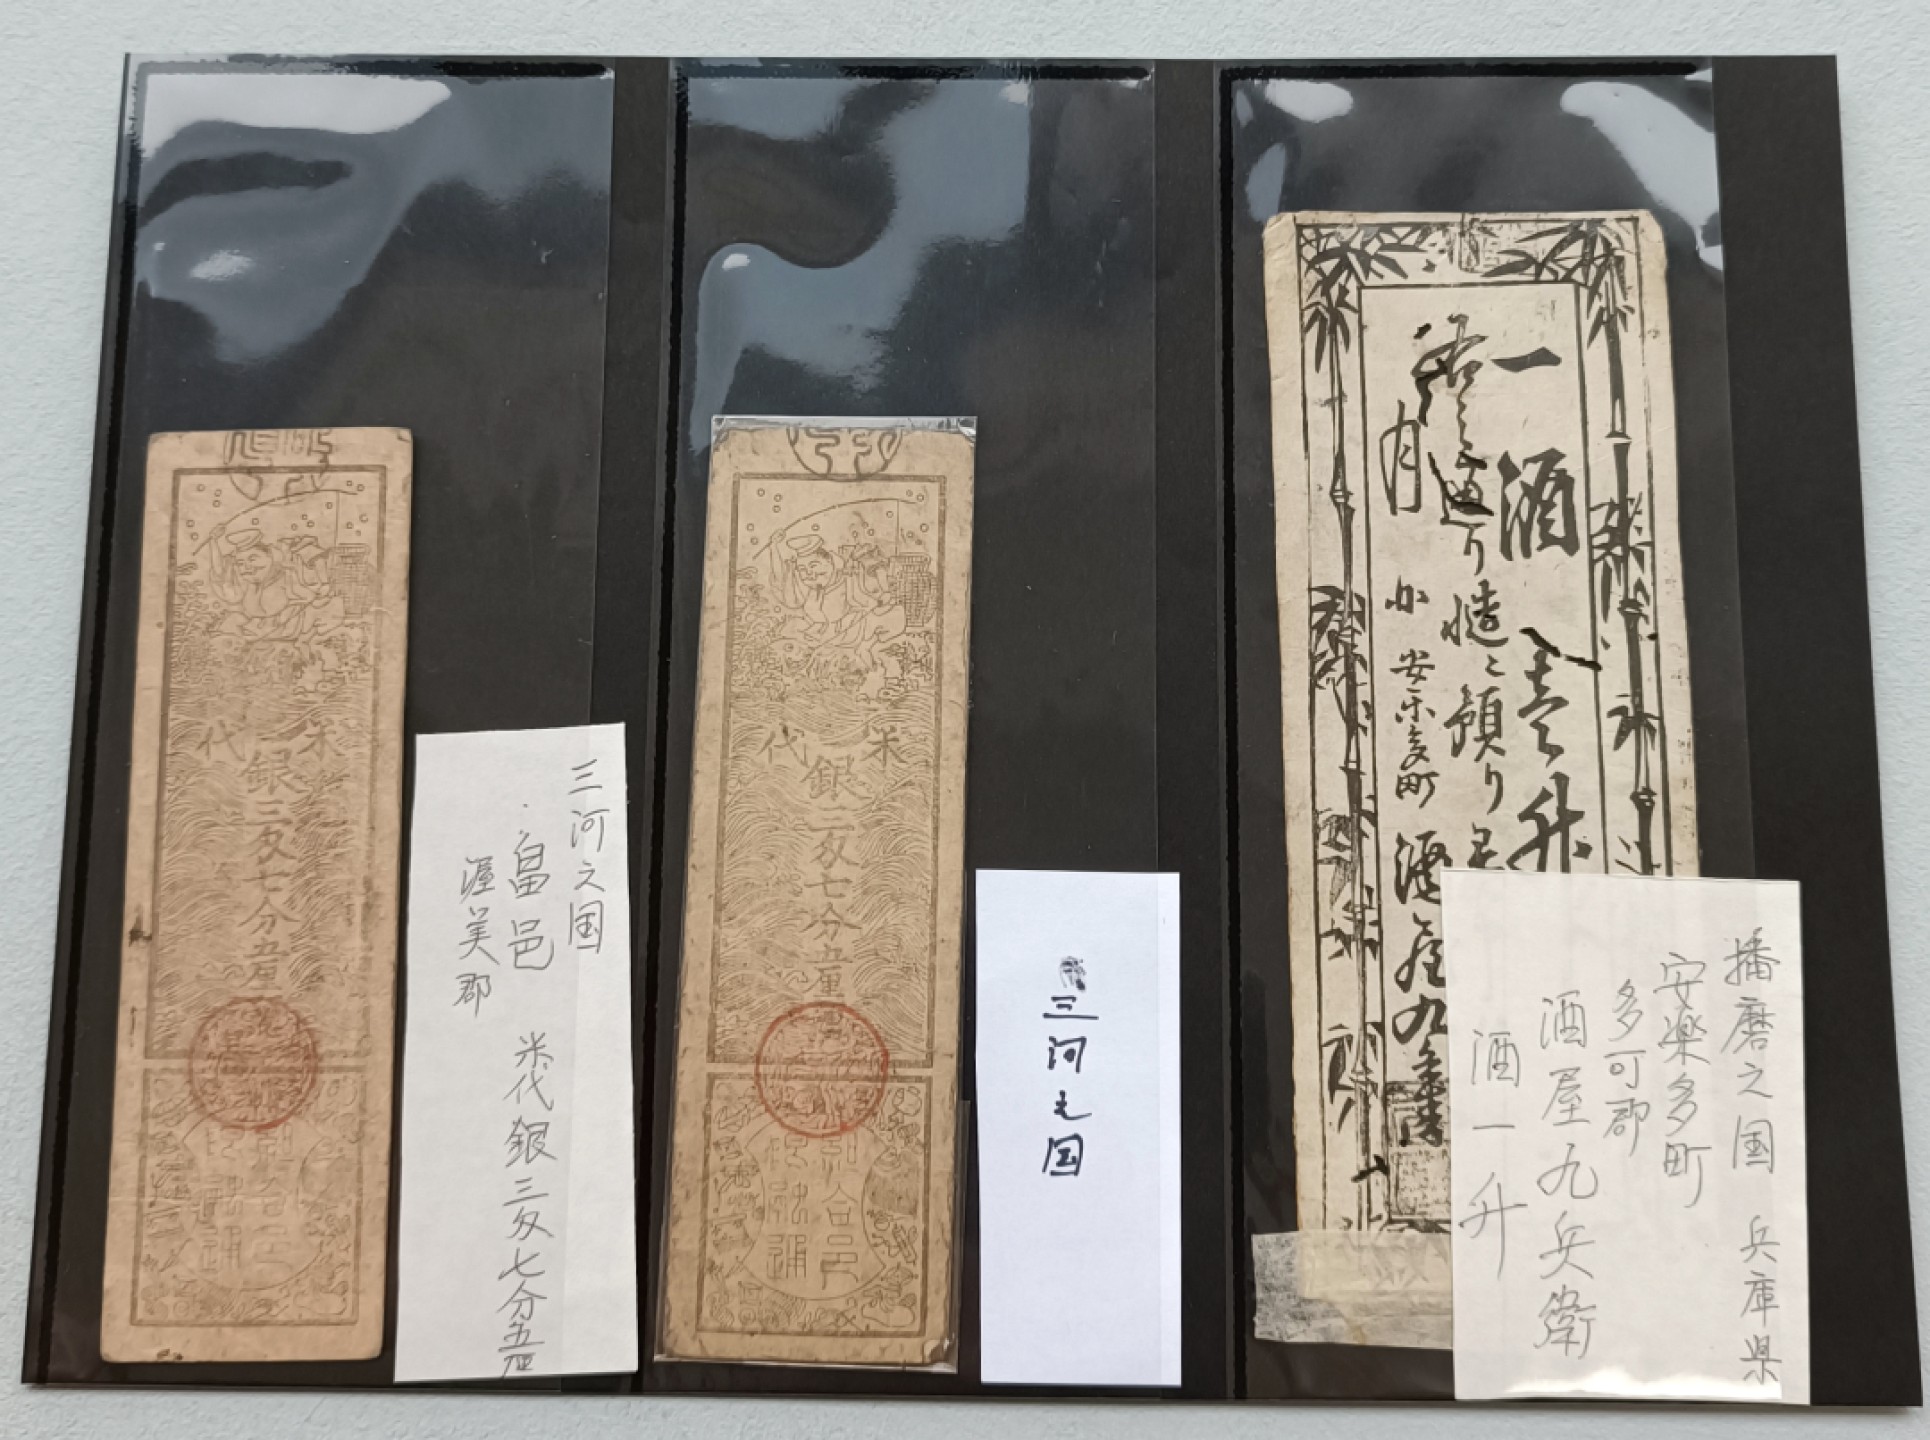 米
代
銀三匁七分五厘
三河之国
畠邑
渥美郡
米代銀三匁七分五厘
米
代
銀三匁七分五厘
和合邑
融通
三河之国
一酒壹升
右之通り慥ニ預り
月
安楽多町
酒屋九兵衛
播磨之国 兵庫県
安楽多町
多可郡
酒屋九兵衛
酒一升